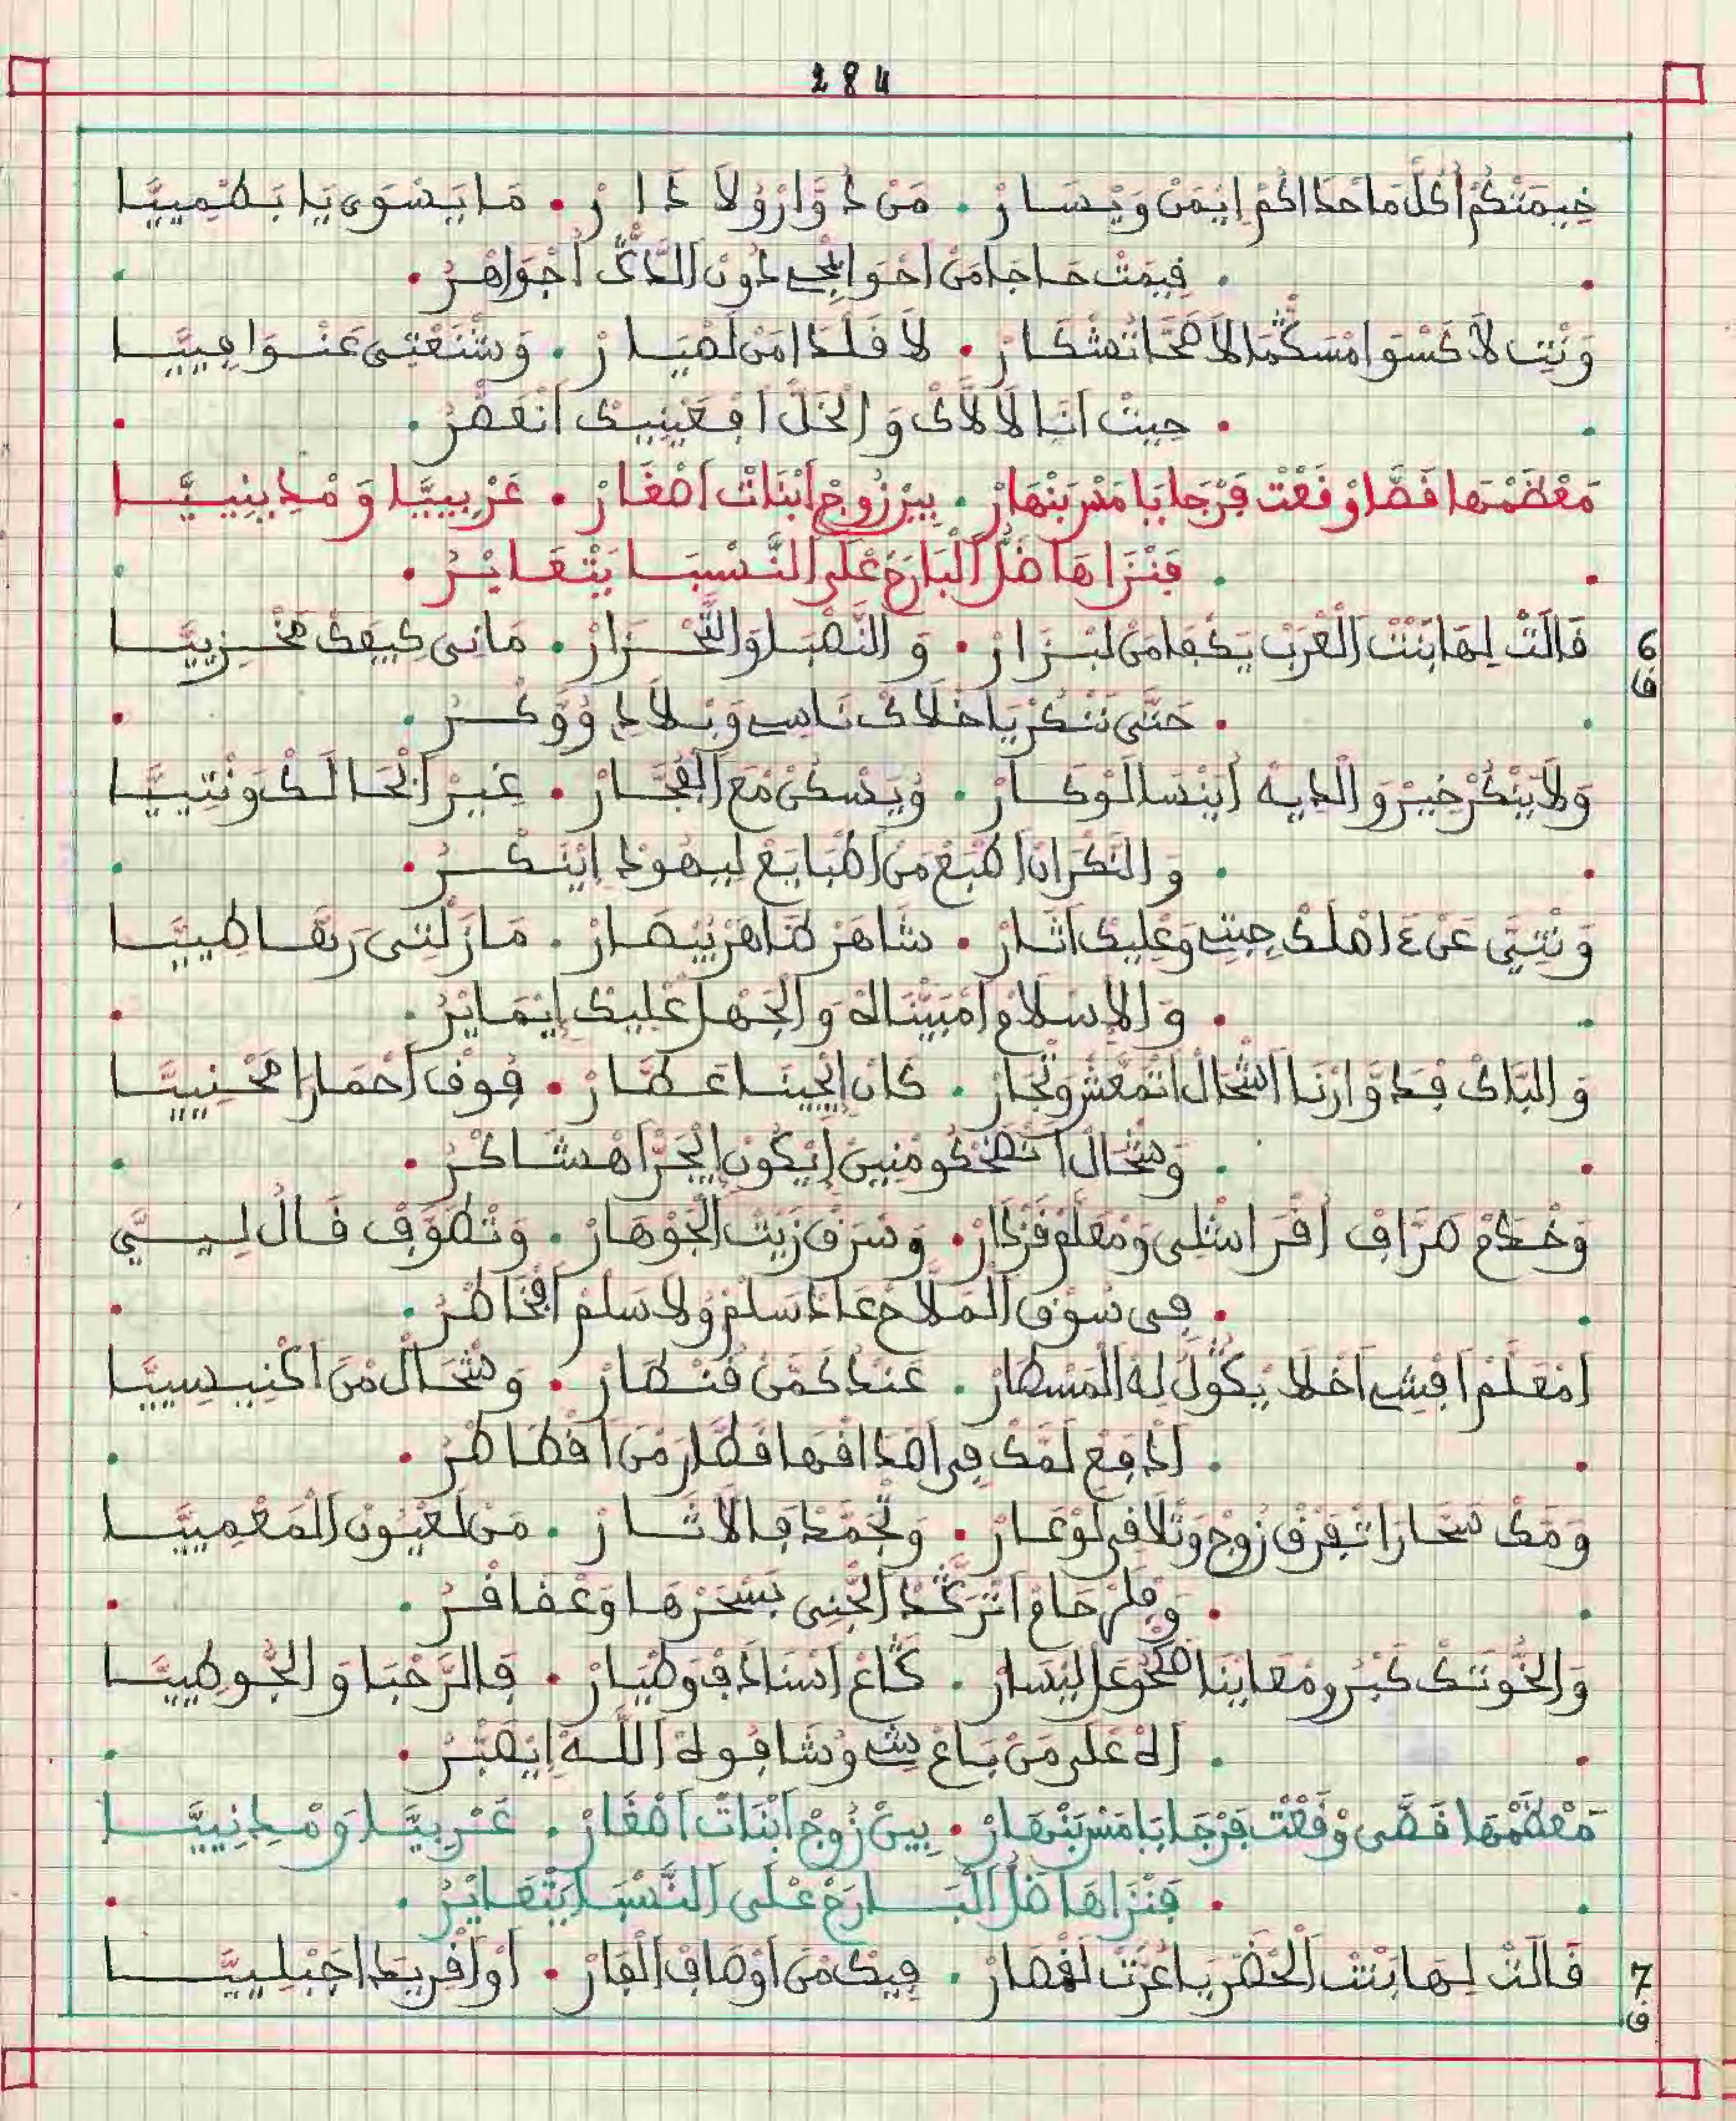 284
خِيمَتْكُمْ اُكُلّ مَا حْدَاكُمْ اِيْمَنْ وَيْسَارْ • مَنْ دُوَّارْ وُلَا دَارْ • مَا يَسْوَى يَا بَطْمِييَّا
• قِيمَتْ حَاجَا مَنْ اَحْوَايْجِي دُونْ الدَّاڭْ اَجْوَاهَرْ •
وَنْتِ لَا كَسْوَا مْسَڭّْمَا لَا تْشَكَارْ • لَا قْلَادَا مَنْ لَعْيَارْ • وَشْنَعْتِي عَنْوَافِييَّا
• حِيتْ اَنَا لَالَّاكْ وَالْخَلّْ اَفْعَيْنِيكْ اَنْقَطَّرْ •
مَعْظَمْهَا قَصَّا وَقْعَتْ فَرْجَا يَا مَسْ بَنْهَارْ • بِينْ زُوجْ اَبْنَاتْ اَصْغَارْ • عَرْبِييَّا وَمْدِينِييَّا
• فَنْزَاهَا ضَلّْ الْبَارَحْ عْلَى النَّسْبَا يَتْعَايْرُ •
6 ف قَالَتْ لِهَا بَنْتْ الْعَرْبْ يَكْفَا مَنْ لَبْزَارْ • وَالنَّصْبَا وَالتَّحْزَارْ • مَانِي كِيفَكْ مَخْزِييَّا
• حَتَّى نَنْكَرْ يَا خْلَاكْ نَاسِي وَبْلَادْ وُوَكْرُ •
وَلَا يَنْكَرْ خِيرْ وَالْدِيهْ اُيَنْسَا لَوْكَارْ • وُيَسْكَنْ مَعَ الْفُجَّارْ • غِيرْ اَبْحَالَكْ وَنْتِييَّا
• وَالنَّكْرَانْ اَطْبَعْ مَنْ اَطْبَايَعْ لِيهُودْ اَيْنَكْرُ •
وَنْتِيَّ عَنْ اَهْلَكْ جِيتِي وَعْلِيكْ اَثَارْ • شَاهَرْ ظَاهَرْ بِيصَارْ • مَازَلْتِي رَبْقَا طِييَّا
• وَالْاِسْلَامْ اَمْبَيْنَالَهْ وَالْجَهْلْ اَعْلِيكْ اِيْمَايَرْ •
وَالْبَّاكْ فِدُوَّارْنَا اَشْحَالْ اَتْمَعَّشْ وَتْجَارْ • كَانْ اِيْجِينَا عَطَّارْ • فُوقْ اَحْمَارَا مَحْنِييَّا
• وَشْحَالْ اَتْضَحْكُو مْنِينْ اَيْكُونْ اِيْجَرَّاهْ شَاكْرُ •
وَخْدَمْ صَرَّافْ اُقَرَّا شْلِي وَمْعَلَّمْ فَرْدَارْ • وَسْرَقْ زَيْتْ الْجَوْهَارْ • وَتْطَوَّفْ قَالْ لِييَّ
• فِي سُوقْ الْمَلَّاحْ عَادْ اَسْلَمْ وُلَا سْلَمْ اَفْخَاطْرُ •
اَمْعَلَّمْ اَفْشِي اَخْلَا يْكُولْ لِهْ الْمَسْطَارْ • عَنْدْ كَمَّنْ قَنْطَارْ • وَشْحَالْ مَنْ اَكْنِيسِييَّا
• اَدْفِعْ لَمَّكْ فِي اَصْدَاقْهَا قَطَّارْ مَنْ اَقْطَاطَرْ •
وَمَّكْ سَحَّارَا تْفَرَّقْ زُوجْ وَتْلَا فِي لَوْعَارْ • وَتْجَمَّدْ فِالْاَثَارْ • مَنْ لَعْيُونْ الْمَعْمِييَّا
• وَقْلَى حَامْ اَتْرَڭَّدْ الْجَنِي بَسْحَرْهَا وَعْقَاقْرُ •
وَالْخُّوتَكْ كَبْرُو مْعَايْنَا ضَحْكُو عَلَى لَيْسَارْ • ڭَاعْ اَسْنَادَفْ وَطْيَارْ • فَالرَّحْبَا وَالْجُوطِييَّا
• اَلَهْ عْلَى مَنْ بَاعْ شِي وُشَافُو لَهْ اللَّهْ اِيْصَبَّرْ •
مَعْظَمْهَا قَصَّى وَقْعَتْ فَرْجَا يَا مَسْ بَنْهَارْ • بِينْ زُوجْ اَبْنَاتْ اَصْغَارْ • عَرْبِييَّا وَمْدِنِييَّا
• فَنْزَاهَا ضَلّْ الْبَارَحْ عْلَى النَّسْبَا يَتْعَايْرُ •
7 ف قَالَتْ لِهَا بَنْتْ الْحَضَرْ يَا عُرَّتْ لَقْصَارْ • فِيكْ مَنْ اَوْصَافْ الْفَارْ • اَوْ اَقْرِيدَا جَبْلِييَّا